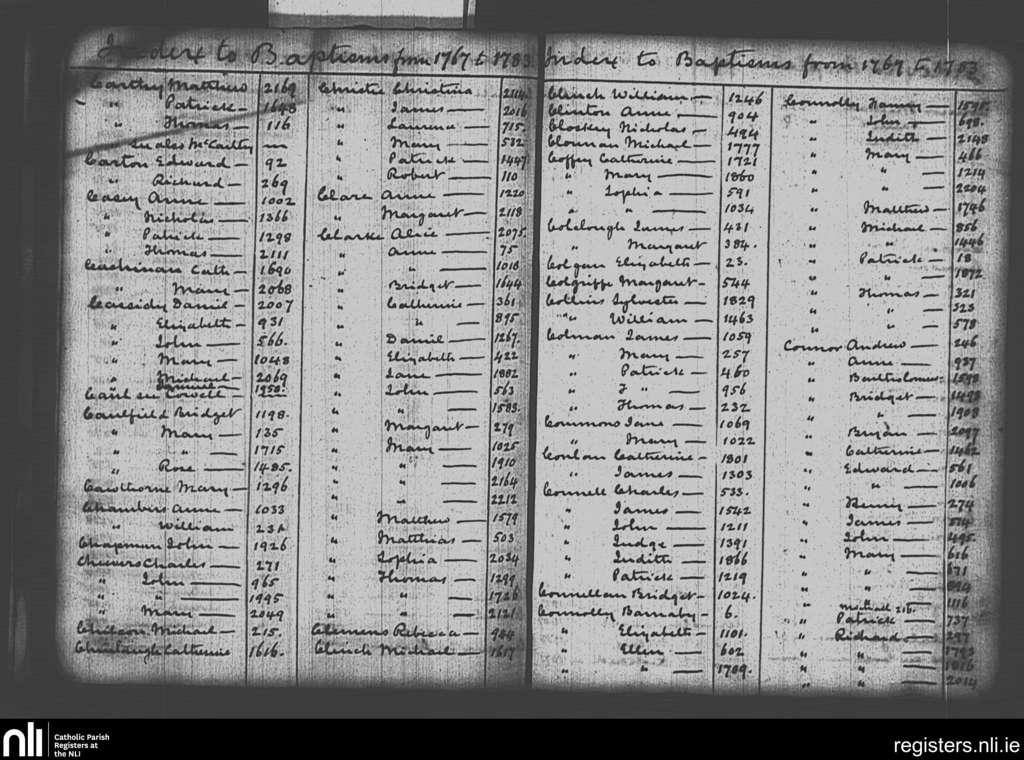 Index to Baptisms from 1767 to 1783
Carthy Matthew 2169
" Patrick — 1648
" Thomas — 116
See also McCarthy —
Carton Edward — 92
" Richard — 269
Casey Anne — 1002
" Nicholas — 1366
" Patrick — 1298
" Thomas — 2111
Cashinan Cath — 1690
" Mary — 2068
Cassidy Daniel — 2007
" Elizabeth — 931
" John — 566.
" Mary — 1048
" Michael — 2069
Caul see Cowell —
Caulfield Bridget 1198.
" Mary — 135
" " — 1715
" Rose — 1485.
Cawthorne Mary — 1296
Chambers Anne — 1033
" William 231
Chapman John — 1926
Chievers Charles — 271
" John — 965
" " — 1995
" Mary — 2049
Michael — 215.
Catherine 1616.
Christie Christina 2114
" James — 2016
" Laurence — 715.
" Mary — 532
" Patrick — 1447
" Robert — 110
Clare Anne — 1220
" Margaret — 2118
Clarke Alice — 2075.
" Anne — 75
" " — 1010
" Bridget — 1644
" Catherine — 361
" " — 895
" Daniel — 1267.
" Elizabeth — 422
" Jane — 1882
" John — 563
" " — 1583.
" Margaret — 279
" Mary — 1025
" " — 1910
" " — 2164
" " — 2212
" Matthew — 1579
" Matthias — 503
" Sophia — 2034
" Thomas — 1299
" " — 1726
" " — 2121
Clemens Rebecca — 984
Clinch Michael — 1617
Index to Baptisms from 1767 to 1783
Clinch William — 1246
Clinton Anne — 904
Closkey Nicholas — 494
Clounan Michael — 1777
Coffey Catherine — 1721
" Mary — 1860
" Sophia — 591
" " — 1034
Colclough James — 431
" Margaret 384.
Colgan Elizabeth — 23.
Colgriffe Margaret — 544
Collins Sylvester — 1829
" William — 1463
Colman James — 1059
" Mary — 257
" Patrick — 460
" " — 956
" Thomas — 232
Commons Jane — 1069
" Mary — 1022
Conlan Catherine — 1801
" James — 1303
Connell Charles — 533.
" James — 1542
" John — 1211
" Judge — 1391
" Judith — 1866
" Patrick — 1219
Connellan Bridget — 1024.
Connolly Barnaby — 6.
" Elizabeth — 1101.
" Ellen — 602
" " — 1709.
Connolly — 1595.
" John — 698.
" Judith — 2148
" Mary — 466
" " — 1214
" " — 2204
" Matthew — 1796
" Michael — 856
" " — 1446
" Patrick — 18
" " — 1872
" Thomas — 321
" " — 323
" " — 578
Connor Andrew — 246
" Anne — 937
" Bartholomew 1598
" Bridget — 1498
" " — 1908
" Bryan — 2097
" Catherine — 1462
" Edward — 561
" " — 1006
" Henry — 274
" James — 514
" John — 495.
" Mary — 616
" " — 671
" " — 894
" " — 1116
" Michael 216.
" Patrick — 737
" Richard — 297
" " — 1793
" " — 1816
" " — 2014
nli
Catholic Parish
Registers at
the NLI
registers.nli.ie